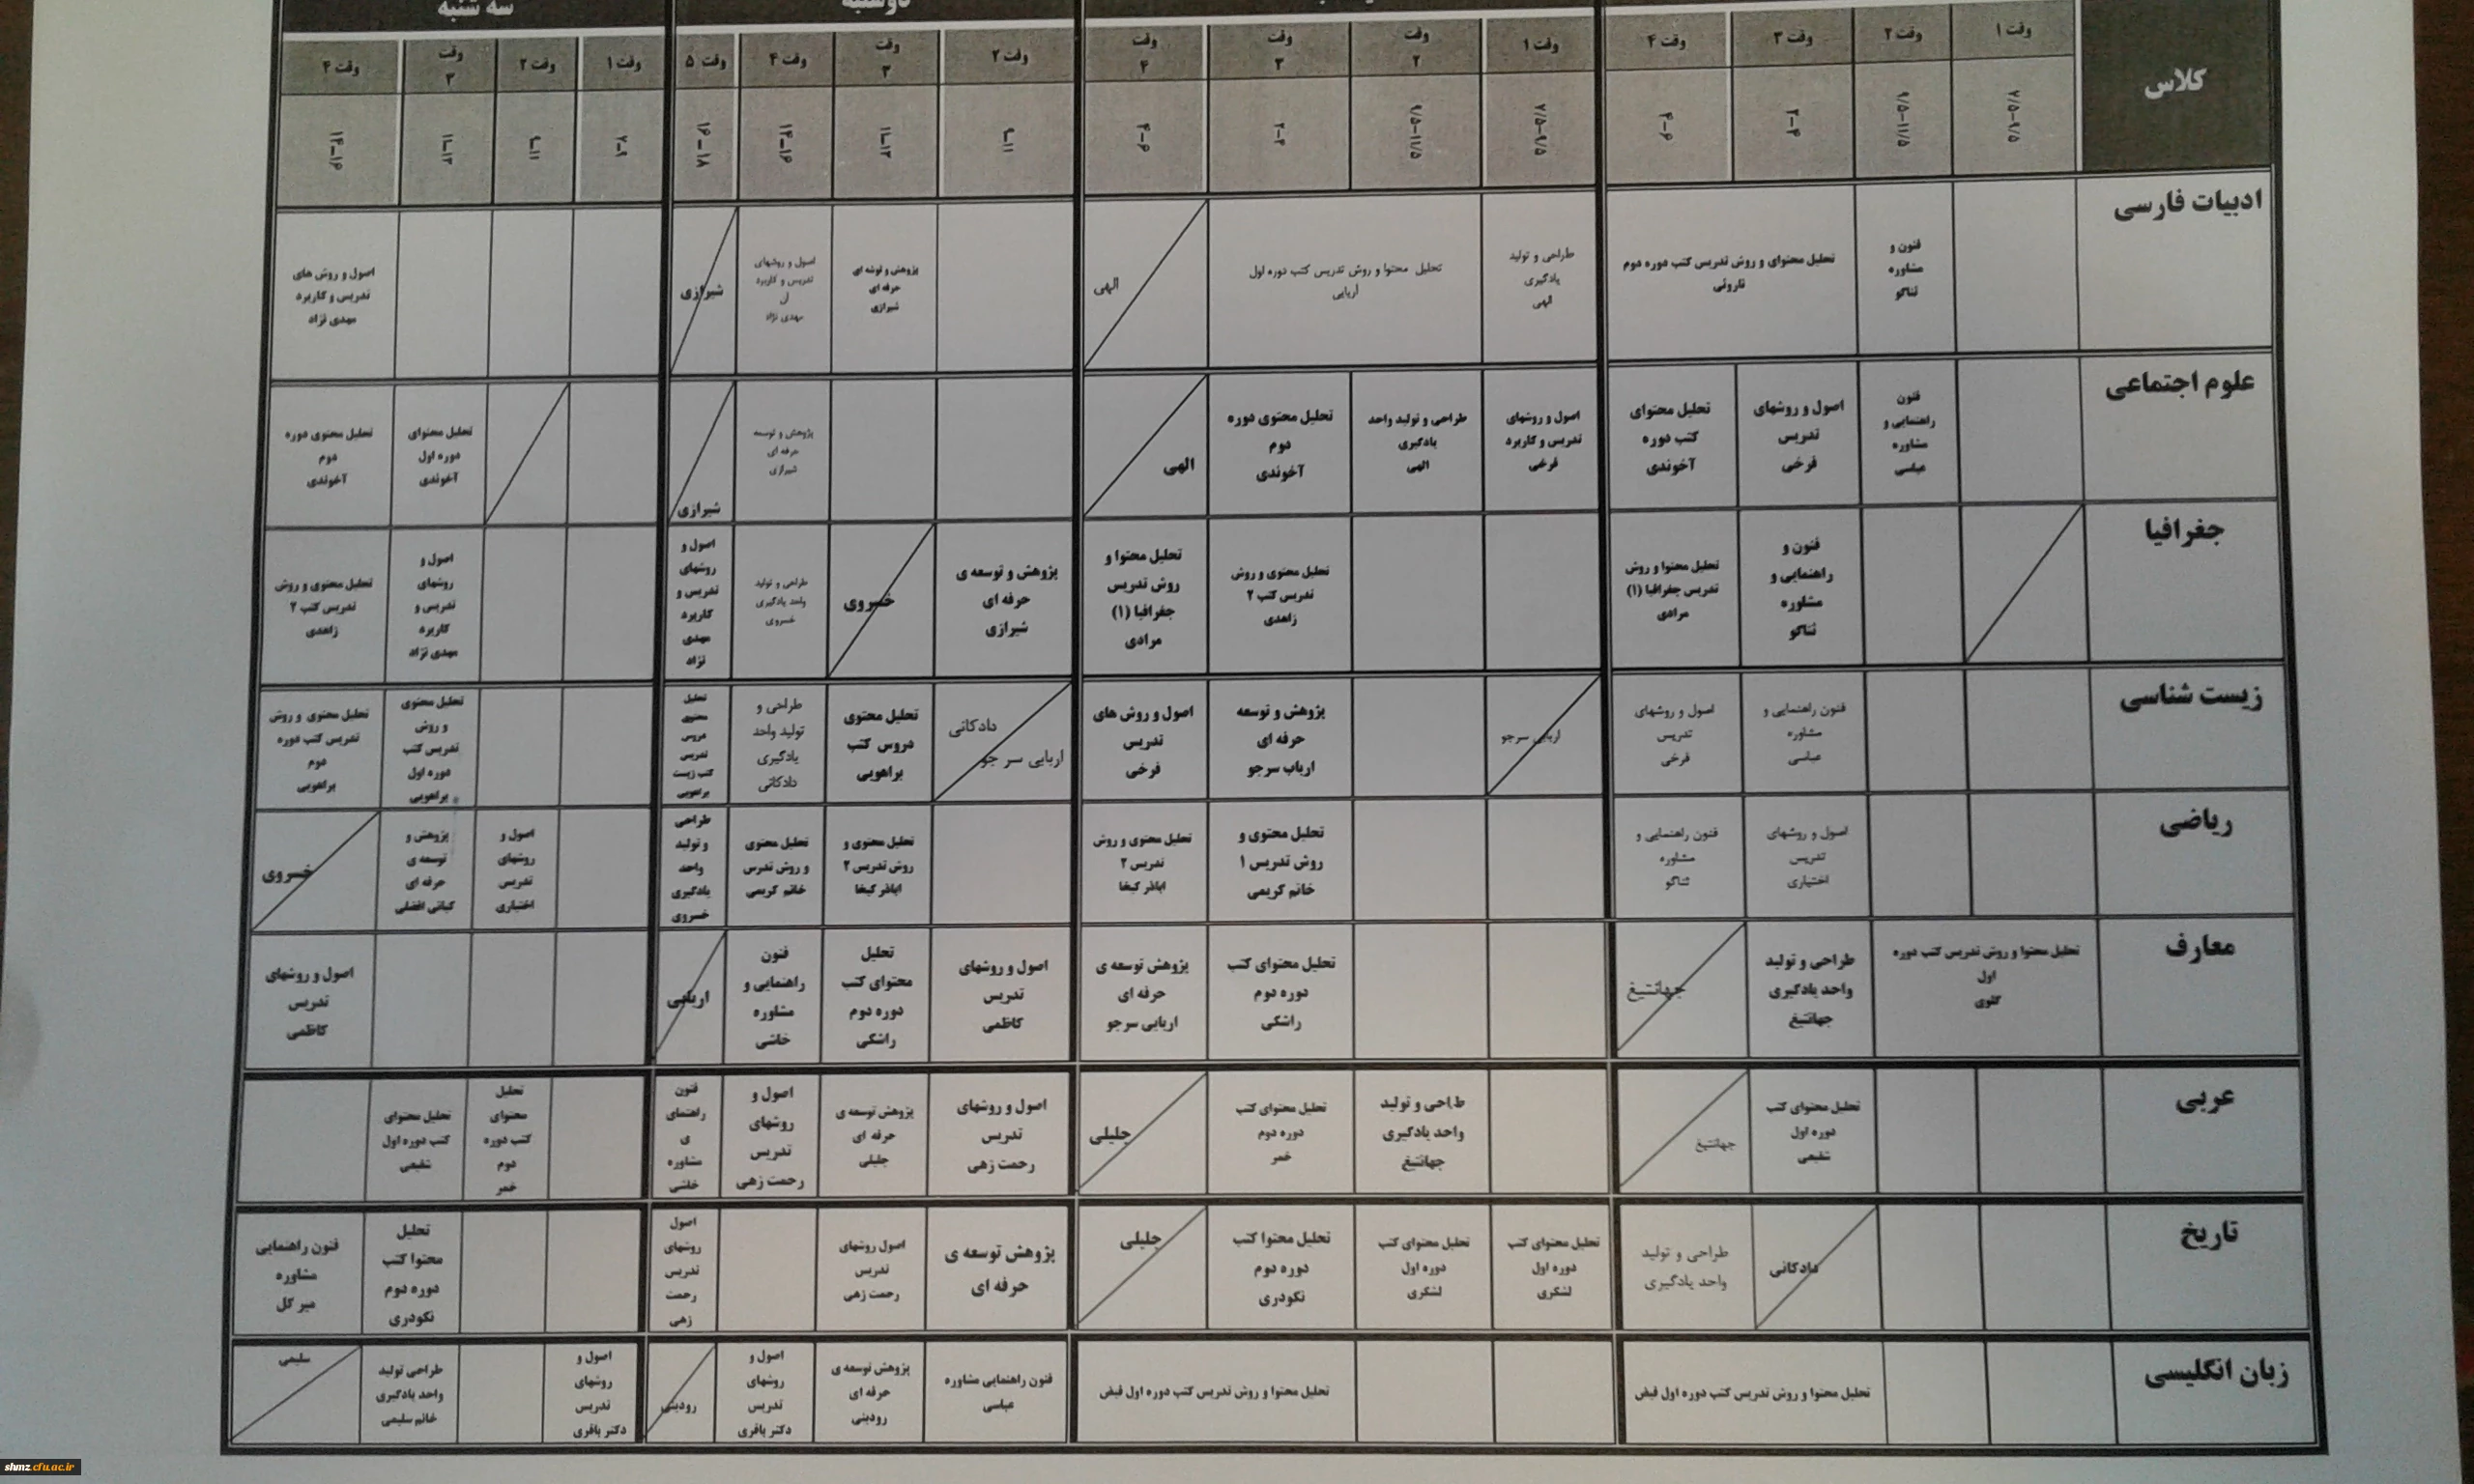 سه شنبه
کلاس
وقت ۱
وقت ۲
وقت ۳
وقت ۴
وقت ۱
وقت
۲
وقت
۳
وقت
۴
وقت ۲
وقت
۳
وقت ۴
وقت ۵
وقت ۱
وقت ۲
وقت
۳
وقت ۴
۷/۵-۹/۵
۹/۵-۱۱/۵
۲-۴
۴-۶
۷/۵-۹/۵
۹/۵-۱۱/۵
۲-۴
۴-۶
۹-۱۱
۱۱-۱۳
۱۴-۱۶
۱۶-۱۸
۷-۹
۹-۱۱
۱۱-۱۳
۱۴-۱۶
ادبیات فارسی
فنون و
مشاوره
ثناگو
تحلیل محتوای و روش تدریس کتب دوره دوم
ناروئی
طراحی و تولید
یادگیری
الهی
تحلیل محتوا و روش تدریس کتب دوره اول
اربابی
الهی
پژوهش و توشه ای
حرفه ای
شیرازی
اصول و روشهای
تدریس و کاربرد
آن
مهدی نژاد
شیرازی
اصول و روش های
تدریس و کاربرد
مهدی نژاد
علوم اجتماعی
فنون
راهنمایی و
مشاوره
عباسی
اصول و روشهای
تدریس
فرخی
تحلیل محتوای
کتب دوره
آخوندی
اصول و روشهای
تدریس و کاربرد
فرخی
طراحی و تولید واحد
یادگیری
الهی
تحلیل محتوی دوره
دوم
آخوندی
الهی
پژوهش و توسعه
حرفه ای
شیرازی
شیرازی
تحلیل محتوای
دوره اول
آخوندی
تحلیل محتوی دوره
دوم
آخوندی
جغرافیا
فنون و
راهنمایی و
مشاوره
ثناگو
تحلیل محتوا و روش
تدریس جغرافیا (۱)
مرادی
تحلیل محتوی و روش
تدریس کتب ۲
زاهدی
تحلیل محتوا و
روش تدریس
جغرافیا (۱)
مرادی
پژوهش و توسعه ی
حرفه ای
شیرازی
خسروی
طراحی و تولید
واحد یادگیری
خسروی
اصول و
روشهای
تدریس و
کاربرد
مهدی
نژاد
اصول و
روشهای
تدریس و
کاربرد
مهدی نژاد
تحلیل محتوی و روش
تدریس کتب ۲
زاهدی
زیست شناسی
فنون راهنمایی و
مشاوره
عباسی
اصول و روشهای
تدریس
فرخی
اربابی سرجو
پژوهش و توسعه
حرفه ای
ارباب سرجو
اصول و روش های
تدریس
فرخی
دادکانی
اربابی سر جو
تحلیل محتوی
دروس کتب
براهویی
طراحی و
تولید واحد
یادگیری
دادکانی
تحلیل
محتوی
تدریس
کتب زیست
براهویی
تحلیل محتوی
و روش
تدریس کتب
دوره اول
براهویی
تحلیل محتوی و روش
تدریس کتب دوره
دوم
براهویی
ریاضی
اصول و روشهای
تدریس
اختیاری
فنون راهنمایی و
مشاوره
ثناگو
تحلیل محتوی و
روش تدریس ۱
خانم کریمی
تحلیل محتوی و روش
تدریس ۲
اباذر کیخا
تحلیل محتوی و
روش تدریس ۲
اباذر کیخا
تحلیل محتوی
و روش تدرس
خانم کریمی
طراحی
و تولید
واحد
یادگیری
خسروی
اصول و
روشهای
تدریس
اختیاری
پژوهش و
توسعه ی
حرفه ای
کیانی افضلی
خسروی
معارف
تحلیل محتوا و روش تدریس کتب دوره
اول
طراحی و تولید
واحد یادگیری
جهانتیغ
جهانتیغ
تحلیل محتوای کتب
دوره دوم
راشکی
پژوهش توسعه ی
حرفه ای
اربابی سرجو
اصول و روشهای
تدریس
کاظمی
تحلیل
محتوای کتب
دوره دوم
راشکی
فنون
راهنمایی و
مشاوره
خاشی
اربابی
اصول و روشهای
تدریس
کاظمی
عربی
تحلیل محتوای کتب
دوره اول
شفیعی
جهانتیغ
طراحی و تولید
واحد یادگیری
جهانتیغ
تحلیل محتوای کتب
دوره دوم
خمر
جلیلی
اصول و روشهای
تدریس
رحمت زهی
پژوهش توسعه ی
حرفه ای
جلیلی
اصول و
روشهای
تدریس
رحمت زهی
فنون
راهنمای
ی
مشاوره
خاشی
تحلیل
محتوای
کتب دوره
دوم
خمر
تحلیل محتوای
کتب دوره اول
شفیعی
تاریخ
دادکانی
طراحی و تولید
واحد یادگیری
تحلیل محتوای کتب
دوره اول
لشگری
تحلیل محتوای کتب
دوره اول
لشگری
تحلیل محتوا کتب
دوره دوم
نکودری
جلیلی
پژوهش توسعه ی
حرفه ای
اصول روشهای
تدریس
رحمت زهی
اصول
روشهای
تدریس
رحمت
زهی
تحلیل
محتوا کتب
دوره دوم
نکودری
فنون راهنمایی
مشاوره
میر کل
زبان انگلیسی
تحلیل محتوا و روش تدریس کتب دوره اول فیض
تحلیل محتوا و روش تدریس کتب دوره اول فیض
فنون راهنمایی مشاوره
عباسی
پژوهش توسعه ی
حرفه ای
رودینی
اصول و
روشهای
تدریس
دکتر باقری
رودینی
اصول و
روشهای
تدریس
دکتر باقری
طراحی تولید
واحد یادگیری
خانم سلیمی
سلیمی
shmz.cfu.ac.ir